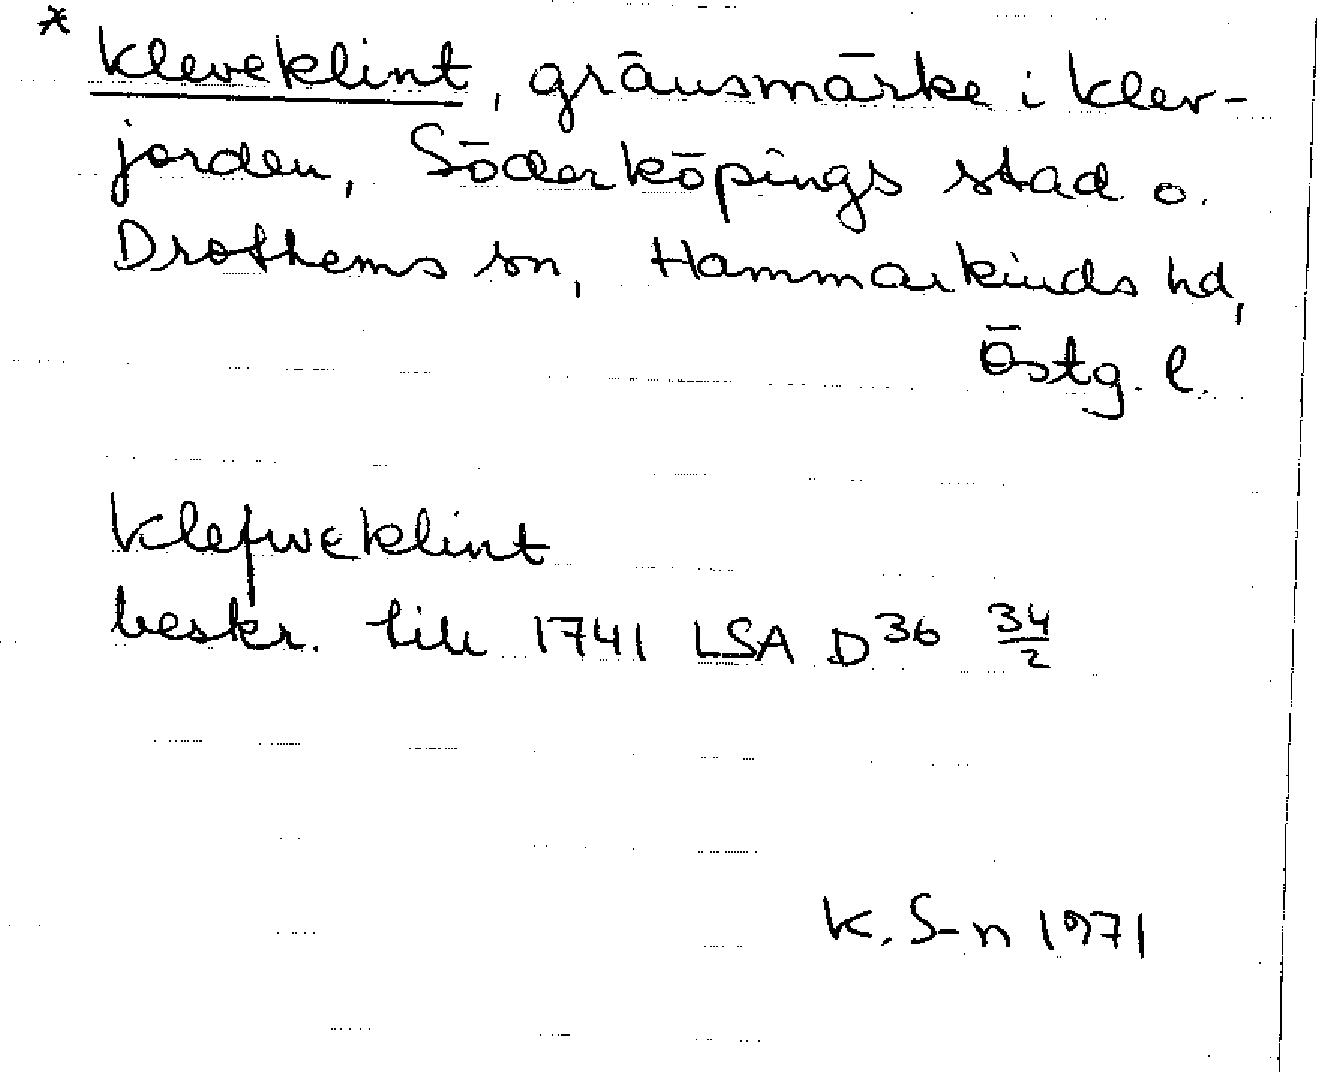 * Kleveklint, gränsmärke i Klev-
jorden, Söderköpings stad o.
Drothems sn, Hammarkinds hd,
Östg. l.
Klefweklint
beskr. till 1741 LSA D36 34/2
K. S-n 1971